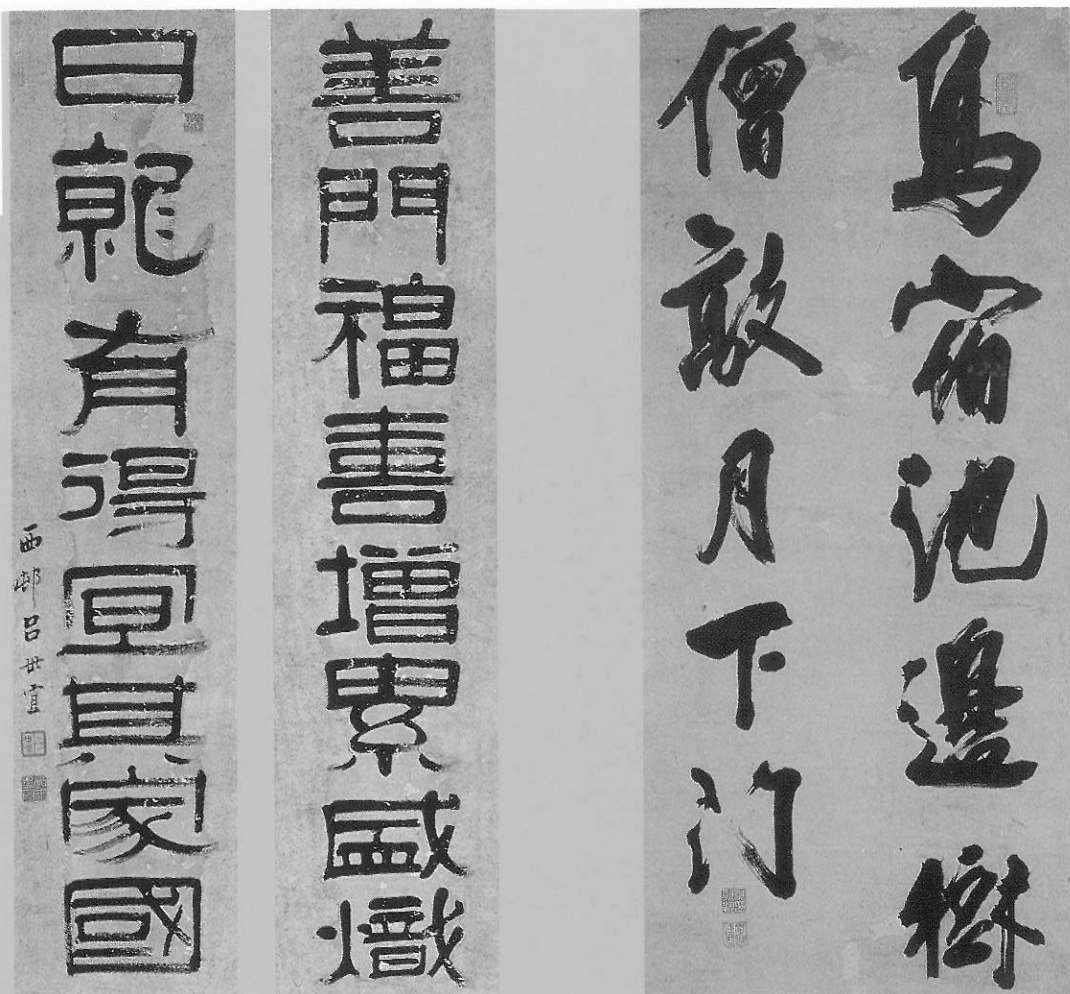 鳥宿池邊樹
僧敲月下門
善門福喜增累盛熾
日就有得宜其家國
西邨呂世宜